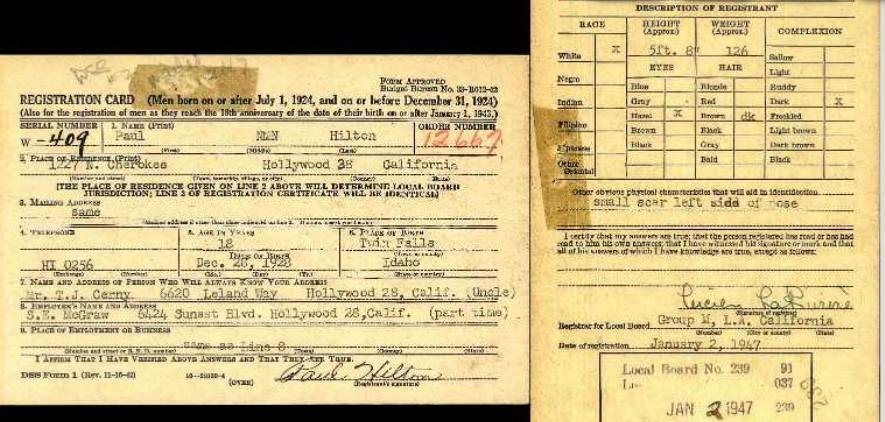 FORM APPROVED
Budget Bureau No.
REGISTRATION CARD (Men born on or after July 1, 1924, and on or before December 31, 1924)
(Also for the registration of men as they reach the 18th anniversary of the date of their birth on or after January 1, 1943.)
SERIAL NUMBER 1. NAME (Print) ORDER NUMBER
W -409 Paul NMN Hilton 12667
(First) (Middle) (Last)
2. PLACE OF RESIDENCE (Print)
1227 N. Cherokee Hollywood 38 California
(Number and street) (Town, township, village, or city) (County) (State)
[THE PLACE OF RESIDENCE GIVEN ON LINE 2 ABOVE WILL DETERMINE LOCAL BOARD
JURISDICTION; LINE 2 OF REGISTRATION CERTIFICATE WILL BE IDENTICAL]
3. MAILING ADDRESS
same
4. TELEPHONE 5. AGE IN YEARS 6. PLACE OF BIRTH
18 Twin Falls
DATE OF BIRTH (Town or county)
HI 0256 Dec. 28, 1928 Idaho
(Exchange) (Number) (Mo.) (Day) (Yr.) (State or country)
7. NAME AND ADDRESS OF PERSON WHO WILL ALWAYS KNOW YOUR ADDRESS
Mr. T.J. Cerny 6620 Leland Way Hollywood 28, Calif. (Uncle)
8. EMPLOYER'S NAME AND ADDRESS
S.E. McGraw 6424 Sunset Blvd. Hollywood 28, Calif. (part time)
9. PLACE OF EMPLOYMENT OR BUSINESS
same as line 8
(Number and street or R.F.D. number) (Town) (County) (State)
I AFFIRM THAT I HAVE VERIFIED ABOVE ANSWERS AND THAT THEY ARE TRUE.
DSS Form 1 (Rev. 11-16-42) (OVER) Paul Hilton
(Registrant's signature)
DESCRIPTION OF REGISTRANT
RACE HEIGHT (Approx.) WEIGHT (Approx.) COMPLEXION
White X 5ft. 8" 126 Sallow
EYES HAIR Light
Negro Blue Blonde Ruddy
Indian Gray Red Dark X
Hazel X Brown dk Freckled
Filipino Brown Black Light brown
Japanese Black Gray Dark brown
Other Oriental Bald Black
Other obvious physical characteristics that will aid in identification
small scar left side of nose
I certify that my answers are true; that the person registered has read or has had
read to him his own answers; that I have witnessed his signature or mark and that
all of his answers of which I have knowledge are true, except as follows:
(Signature of registrar)
Registrar for Local Board Group M, L.A. California
(Number) (City or county) (State)
Date of registration January 2, 1947
Local Board No. 239 91
037
JAN 2 1947 239